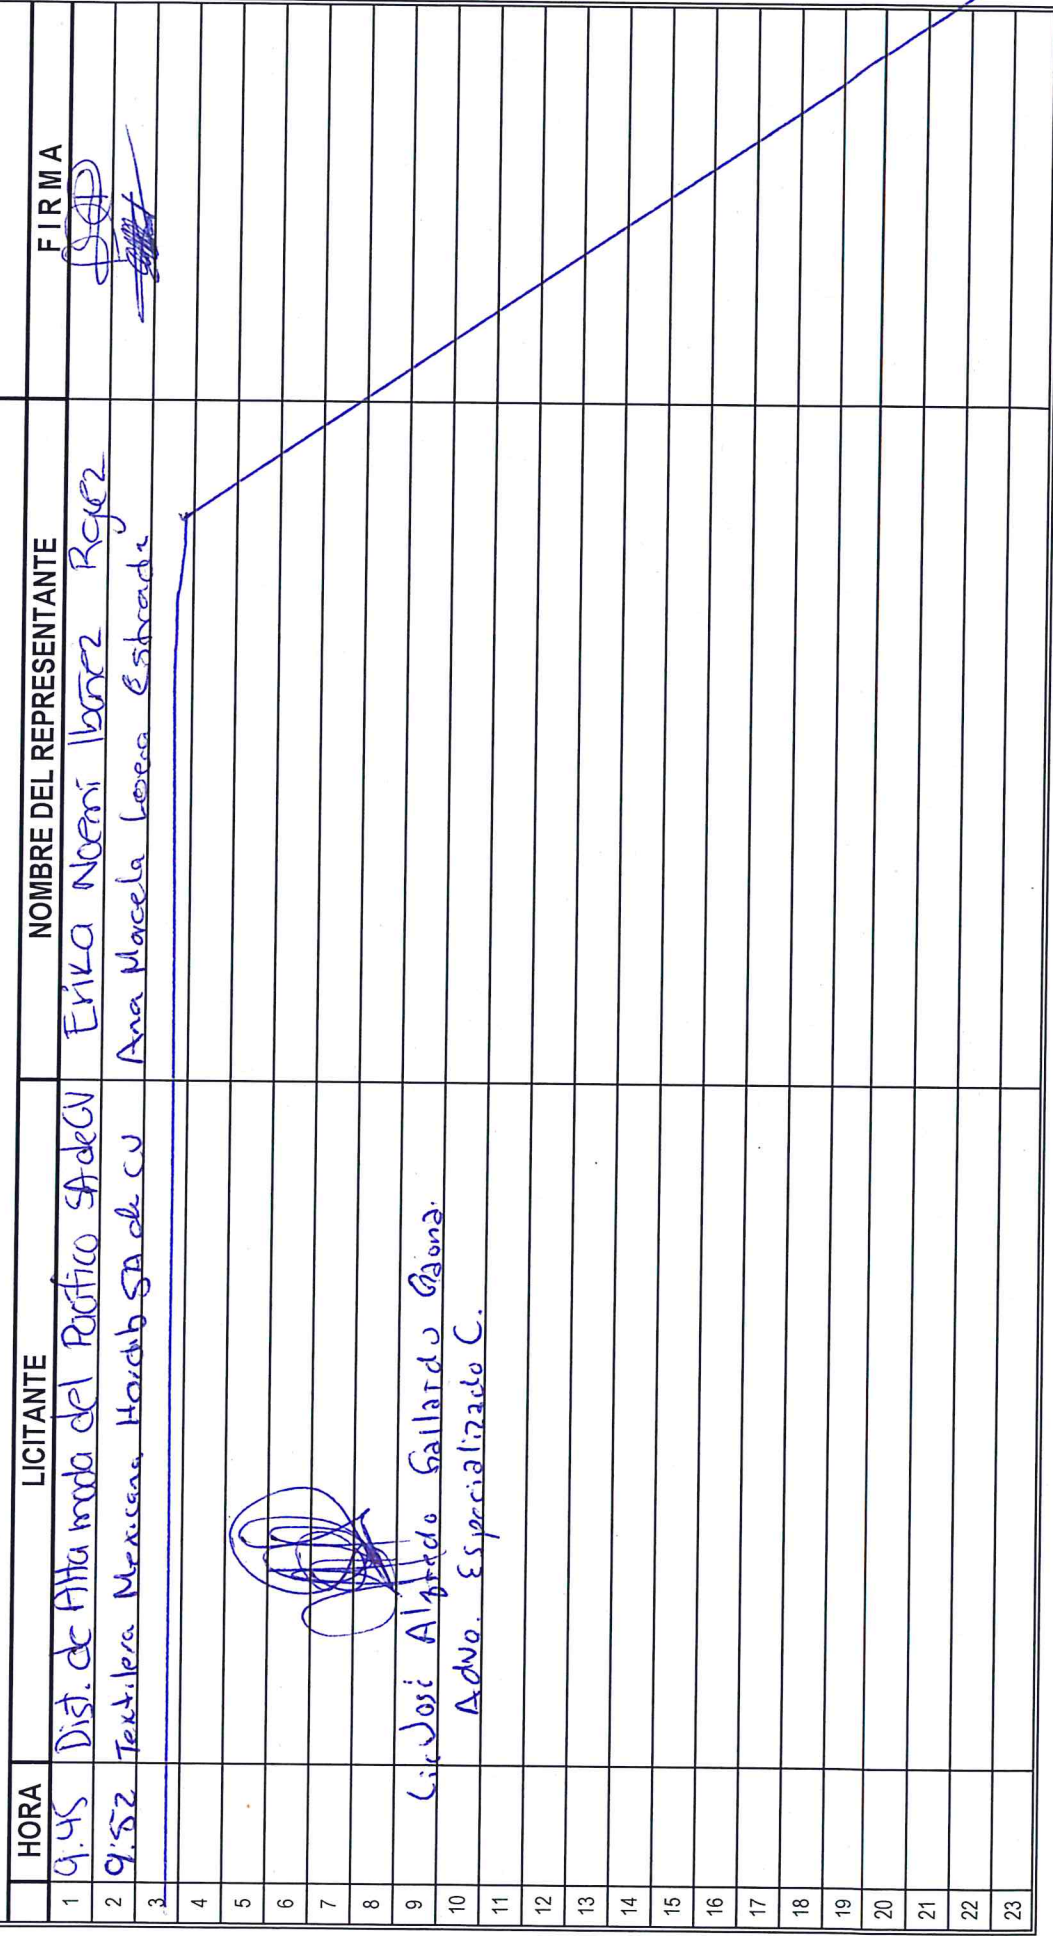 HORA LICITANTE NOMBRE DEL REPRESENTANTE FIRMA
1 9:45 Dist. de Alta moda del Pacífico SA de CV Erika Noemi Ibañez Rguez
2 9:52 Textilera Mexicana SA de CV Ana Marcela Loera Estrada
3
4
5
6
7
8
9 Lic José Alfredo Gallardo Gaona.
10 Advo. Especializado C.
11
12
13
14
15
16
17
18
19
20
21
22
23